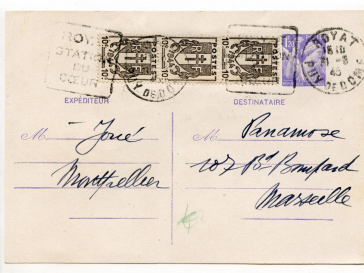 ROYAT
STATION
DU
CŒUR
10c POSTES 10c POSTES 10c POSTES
PUY DE DOME
1F20
ROYAT
15 10
21-8
45
PUY DE DOME
EXPÉDITEUR
DESTINATAIRE
M José
Montpellier
M Panamose
107 Bd Bompard
Marseille